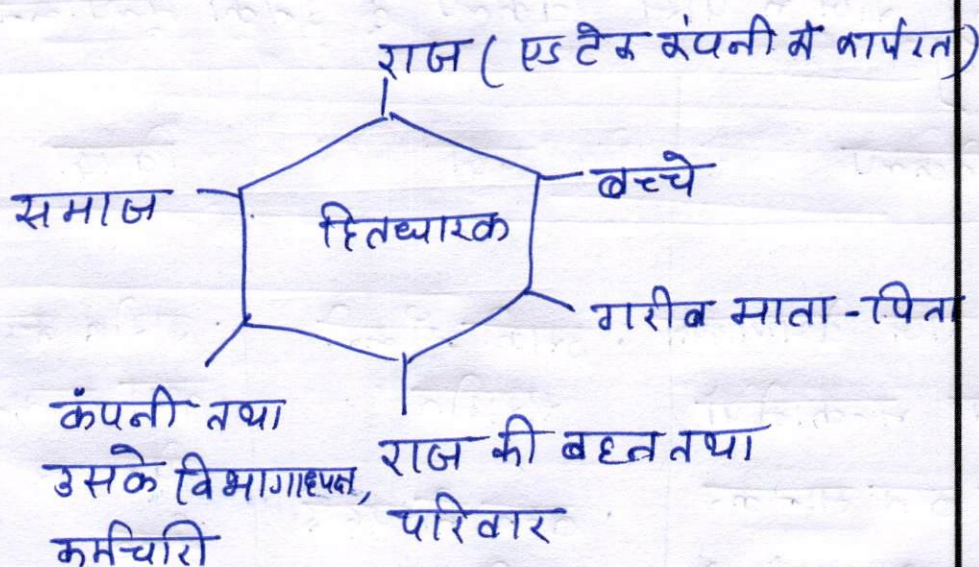 राज (एड टेक कंपनी में कार्यरत)
समाज
बच्चे
हितधारक
गरीब माता-पिता
कंपनी तथा
उसके विभागाध्यक्ष,
कर्मचारी
राज की बहन तथा
परिवार